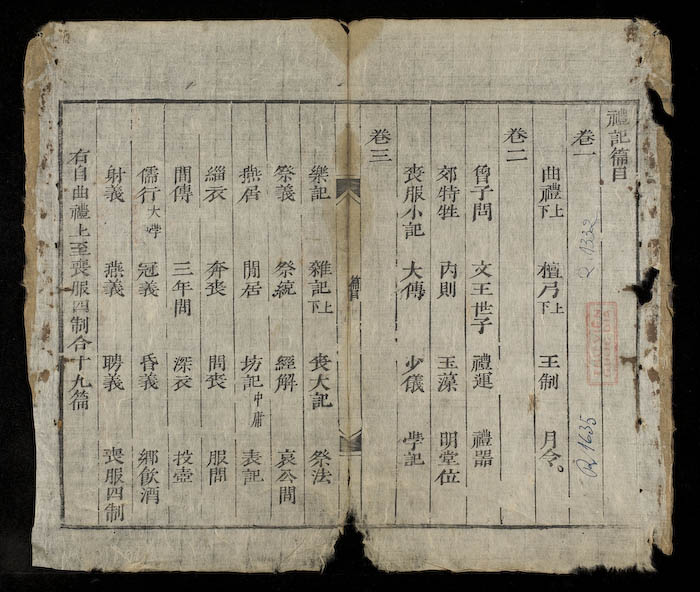 禮記篇目
卷一
曲禮上下 檀弓上下 王制 月令。
卷二
曾子問 文王世子 禮運 禮器
郊特牲 內則 玉藻 明堂位
喪服小記 大傳 少儀 學記
卷三
篇目
樂記 雜記上下 喪大記 祭法
祭義 祭統 經解 哀公問
燕居 閒居 坊記 中庸 表記
緇衣 奔喪 問喪 服問
間傳 三年問 深衣 投壺
儒行 大學 冠義 昏義 鄉飲酒
射義 燕義 聘義 喪服四制
右自曲禮上至喪服四制合十九篇
1332
1635